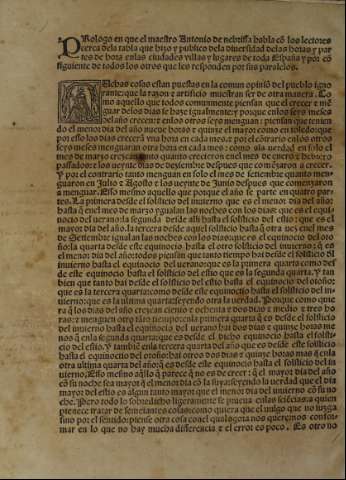 Prologo en que el maestro Antonio de nebrissa habla cõ los lectores
cerca dela tabla que hizo y publico dela diversidad delas horas y par
tes de hora enlas ciudades villas y lugares de toda España y por cõ
siguiente de todos los otros que les responden por sus paralelos.
Muchas cosas estan puestas en la comun opiniõ del pueblo igno
rante: que la razon e artificio muestran ser de otra manera. Co
mo aquello que todos comunmente piensan que el crecer e mē
guar delos dias se haze igualmente: porque enlos seys meses
del año crecen: e enlos otros seys menguan: piensan que tenien
do el menor dia del año nueve horas e quinze el mayor como en toledo: que
por esso los dias crecerã una hora en cada mes: e por el contrario enlos otros
seys meses menguaran otra hora en cada mes: como sea verdad en solo el
mes de março crezcan tanto quanto crecieron enel mes de enero e hebrero
passados: e los veynte dias de deziembre despues que començaron a crecer.
Y por el contrario tanto menguan en solo el mes de setiembre quanto mengua
ron en Julio e Agosto e los veynte de Junio despues que començaron
a menguar. Esso mesmo aquello que porque el año se parte en quatro par
tes. La primera desde el solsticio del invierno que es el menor dia del año:
hasta q̃ enel mes de março ygualan las noches con los dias: que es el equi
nocio del verano: la segunda desde alli hasta el solsticio del estio: que es el
mayor dia del año. la tercera desde aquel solsticio hasta q̃ otra vez enel mes
de Setiembre igualan las noches con los dias: que es el equinocio del oto
ño: la quarta desde este equinocio hasta el otro solsticio del invierno: q̃ es
el menor dia del año: todos piensan que tanto tiempo hai desde el solsticio dl
invierno hasta el equinocio del verano: que es la primera quarta como des
de este equinocio hasta el solsticio del estio que es la segunda quarta. Y tan
bien que tanto hai desde el solsticio del estio hasta el equinocio del otoño:
que es la tercera quarta: como desde este equinocio hasta el solsticio del in
vierno: que es la ultima quarta: seyendo otra la verdad. Porque como quie
ra q̃ los dias del año crezcan ciento e ochenta e dos dias e medio e tres ho
ras: e menguen otro tãto tiempo: enla primera quarta q̃ es desde el solsticio
del invierno hasta el equinocio del verano hai dos dias e quinze horas me
nos q̃ enla segunda quarta: que es desde el dicho equinocio hasta el solsti
cio del estio. Y tambiē enla tercera quarta del año que es desde este solsticio
hasta el equinocio del otoño: hai otros dos dias e quinze horas mas q̃ enla
otra ultima quarta del año: q̃ es desde este equinocio hasta el solsticio del in
vierno. Esso mesmo aq̃llo q̃ parece q̃ no es de creer: q̃ el mayor dia del año
con su noche sea mayor q̃ el menor dia cō la suya: seyendo la verdad que el dia
mayor del estio es algun tanto mayor que el menor dia del invierno cõ su no
che. Pero todo lo sobredicho ligeramente se prueva enlas sciēcias: a quien
pertenece tratar de semejantes cosas: como quiera que el vulgo que no juzga
sino por el sentido: piense otra cosa con el qual agora nos queremos confor
mar en lo que no hay mucha differencia e el error es poco. Es otro no